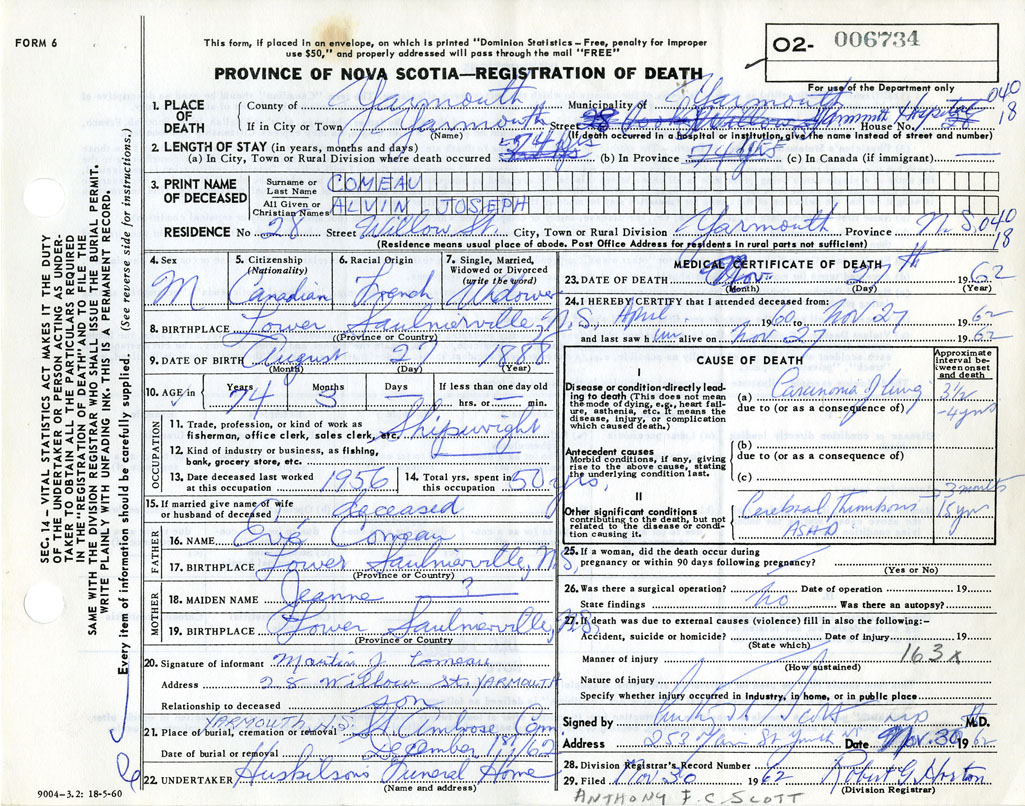 FORM 6
This form, if placed in an envelope, on which is printed "Dominion Statistics – Free, penalty for improper
use $50," and properly addressed will pass through the mail "FREE"
O2- 006734
PROVINCE OF NOVA SCOTIA—REGISTRATION OF DEATH
For use of the Department only
1. PLACE OF DEATH
County of Yarmouth Municipality of Yarmouth 040
If in City or Town Yarmouth Street House No. 18
(Name) (If death occurred in a hospital or institution, give the name instead of street and number)
2. LENGTH OF STAY (in years, months and days)
(a) In City, Town or Rural Division where death occurred 74 yrs (b) In Province 74 yrs (c) In Canada (if immigrant)
3. PRINT NAME OF DECEASED
Surname or Last Name COMEAU
All Given or Christian Names ALVIN JOSEPH
RESIDENCE No. 28 Street Willow St. City, Town or Rural Division Yarmouth Province N.S. 040
18
(Residence means usual place of abode. Post Office Address for residents in rural parts not sufficient)
4. Sex M
5. Citizenship (Nationality) Canadian
6. Racial Origin French
7. Single, Married, Widowed or Divorced (write the word) Widower
8. BIRTHPLACE Lower Saulnierville, N.S.
(Province or Country)
9. DATE OF BIRTH August 27 1888
(Month) (Day) (Year)
10. AGE in Years 74 Months 3 Days — If less than one day old hrs. or — min.
OCCUPATION
11. Trade, profession, or kind of work as fisherman, office clerk, sales clerk, etc. Shipwright
12. Kind of industry or business, as fishing, bank, grocery store, etc.
13. Date deceased last worked at this occupation 1956
14. Total yrs. spent in this occupation 50 yrs.
15. If married give name of wife or husband of deceased deceased
FATHER
16. NAME Comeau
17. BIRTHPLACE Lower Saulnierville, N.S.
(Province or Country)
MOTHER
18. MAIDEN NAME Jeanne ?
19. BIRTHPLACE Lower Saulnierville, N.S.
(Province or Country)
20. Signature of informant Martin J. Comeau
Address 28 Willow St. YARMOUTH
Relationship to deceased son
YARMOUTH N.S.
21. Place of burial, cremation or removal St Ambrose Cem
Date of burial or removal December 1st/62
22. UNDERTAKER Huskilson's Funeral Home
(Name and address)
9004–3.2: 18-5-60
MEDICAL CERTIFICATE OF DEATH
23. DATE OF DEATH Nov. 27th 1962
(Month) (Day) (Year)
24. I HEREBY CERTIFY that I attended deceased from:
April 1960 to Nov 27 1962
and last saw him alive on Nov 27 1962
CAUSE OF DEATH
Approximate interval between onset and death
I
Disease or condition directly leading to death (This does not mean the mode of dying, e.g., heart failure, asthenia, etc. It means the disease, injury, or complication which caused death.)
(a) Carcinoma of lung 3 1/2 - 4 yrs
due to (or as a consequence of)
Antecedent causes
Morbid conditions, if any, giving rise to the above cause, stating the underlying condition last.
(b)
due to (or as a consequence of)
(c)
II
Other significant conditions contributing to the death, but not related to the disease or condition causing it.
Cerebral Thrombosis 3 months
ASHD 15 yrs
25. If a woman, did the death occur during pregnancy or within 90 days following pregnancy?
(Yes or No)
26. Was there a surgical operation? No Date of operation 19
State findings Was there an autopsy?
27. If death was due to external causes (violence) fill in also the following:–
Accident, suicide or homicide? Date of injury 19
(State which)
Manner of injury 163x
(How sustained)
Nature of injury
Specify whether injury occurred in industry, in home, or in public place
Signed by M.D.
Address 253 Main St Date Nov. 30 1962
28. Division Registrar's Record Number
29. Filed Nov 30 1962 Robert G. Horton
(Division Registrar)
ANTHONY F. C. SCOTT
SEC. 14 – VITAL STATISTICS ACT MAKES IT THE DUTY
OF THE UNDERTAKER OR PERSON ACTING AS UNDER-
TAKER TO OBTAIN ALL THE PARTICULARS REQUIRED
IN THE "REGISTRATION OF DEATH" AND TO FILE THE
SAME WITH THE DIVISION REGISTRAR WHO SHALL ISSUE THE BURIAL PERMIT.
WRITE PLAINLY WITH UNFADING INK. THIS IS A PERMANENT RECORD.
Every item of information should be carefully supplied. (See reverse side for instructions.)